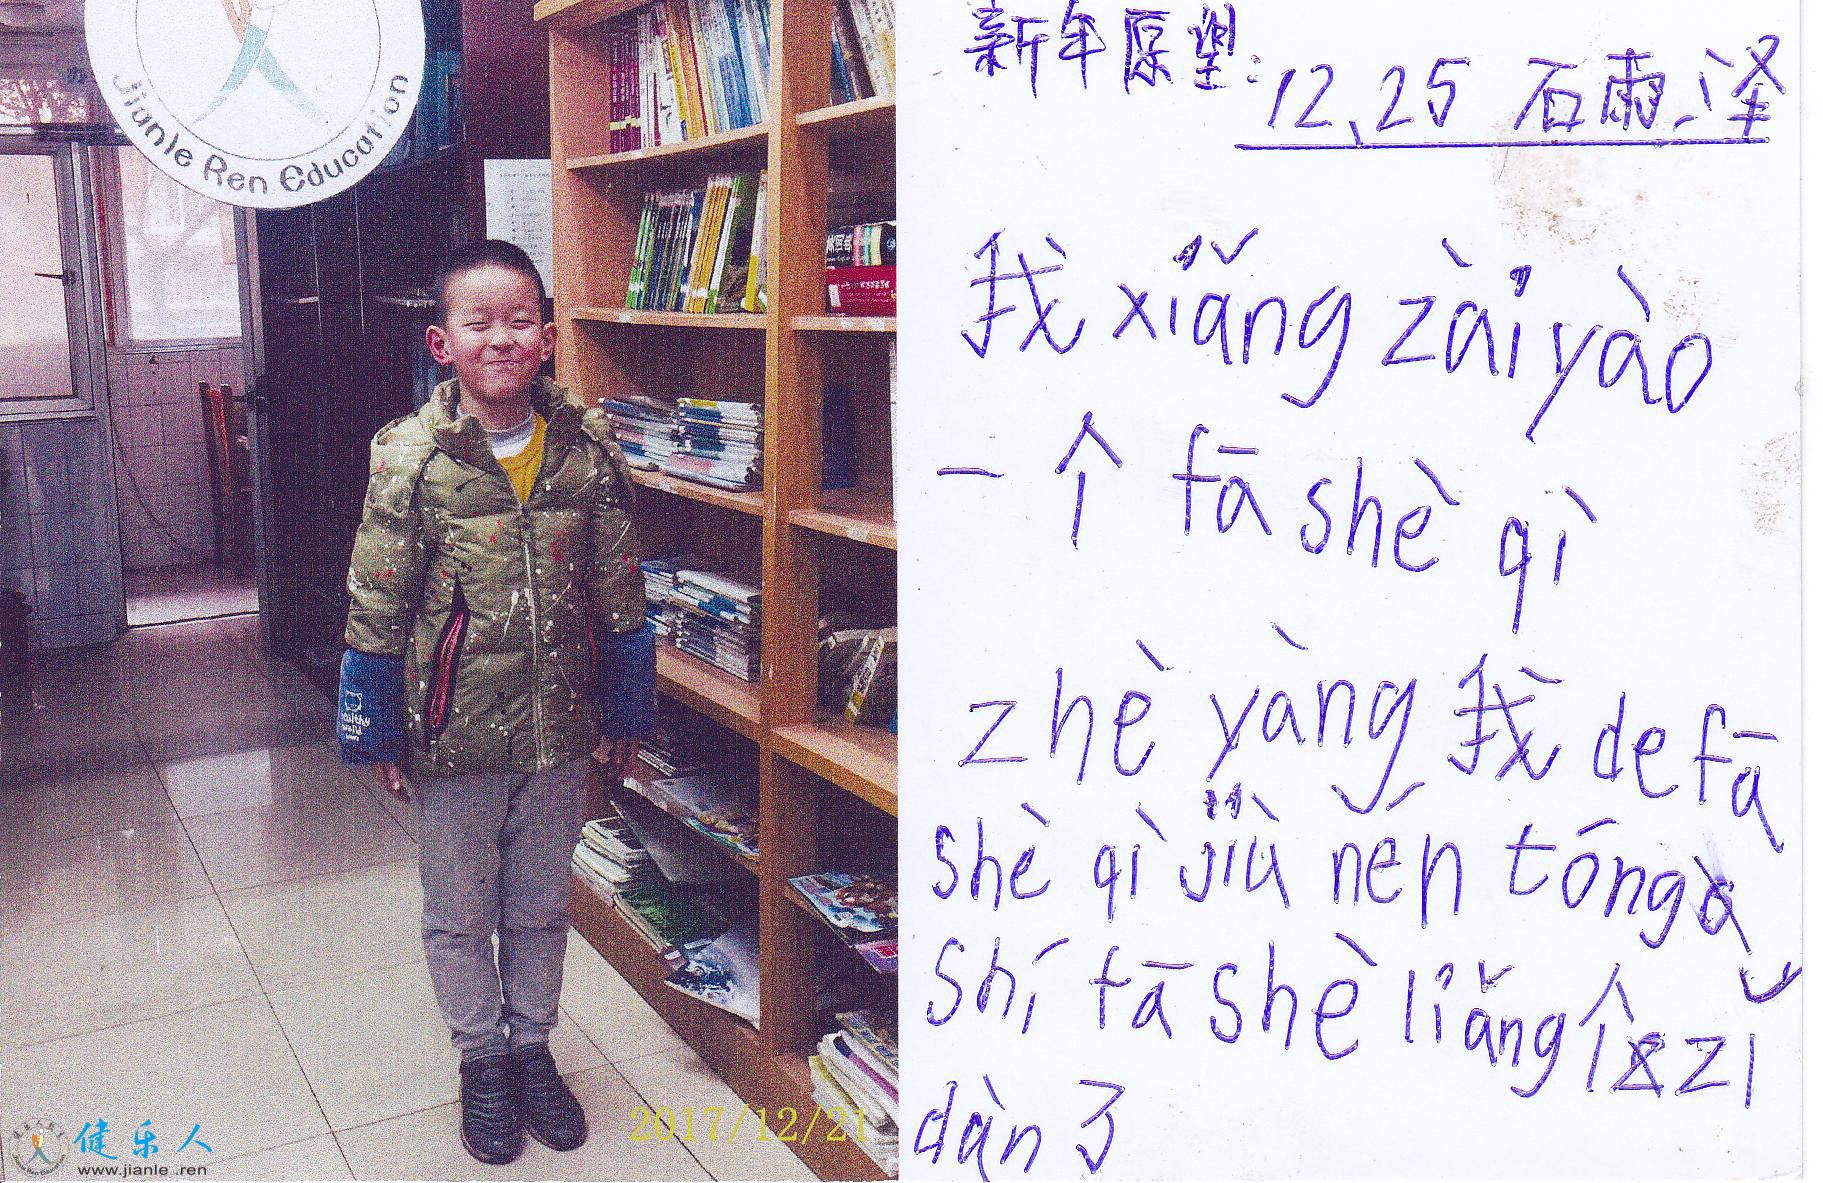 Jianle Ren Education
健乐人
www.jianle.ren
2017/12/21
新年愿望:
12、25 石雨泽
我 xiǎng zài yào
一个 fā shè qì
zhè yàng 我 de fā
shè qì jiù něn tóng
shí fā shè liǎng个 zǐ
dàn 了